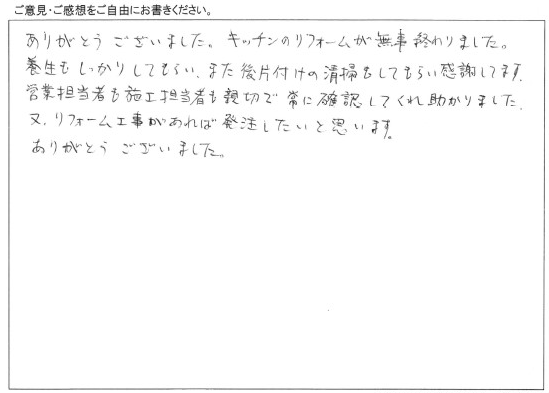 ご意見・ご感想をご自由にお書きください。
ありがとうございました。キッチンのリフォームが無事終わりました。
養生もしっかりしてもらい、また後片付けの清掃もしてもらい感謝してます。
営業担当者も施工担当者も親切で常に確認してくれ助かりました。
又、リフォーム工事があれば発注したいと思います。
ありがとうございました。